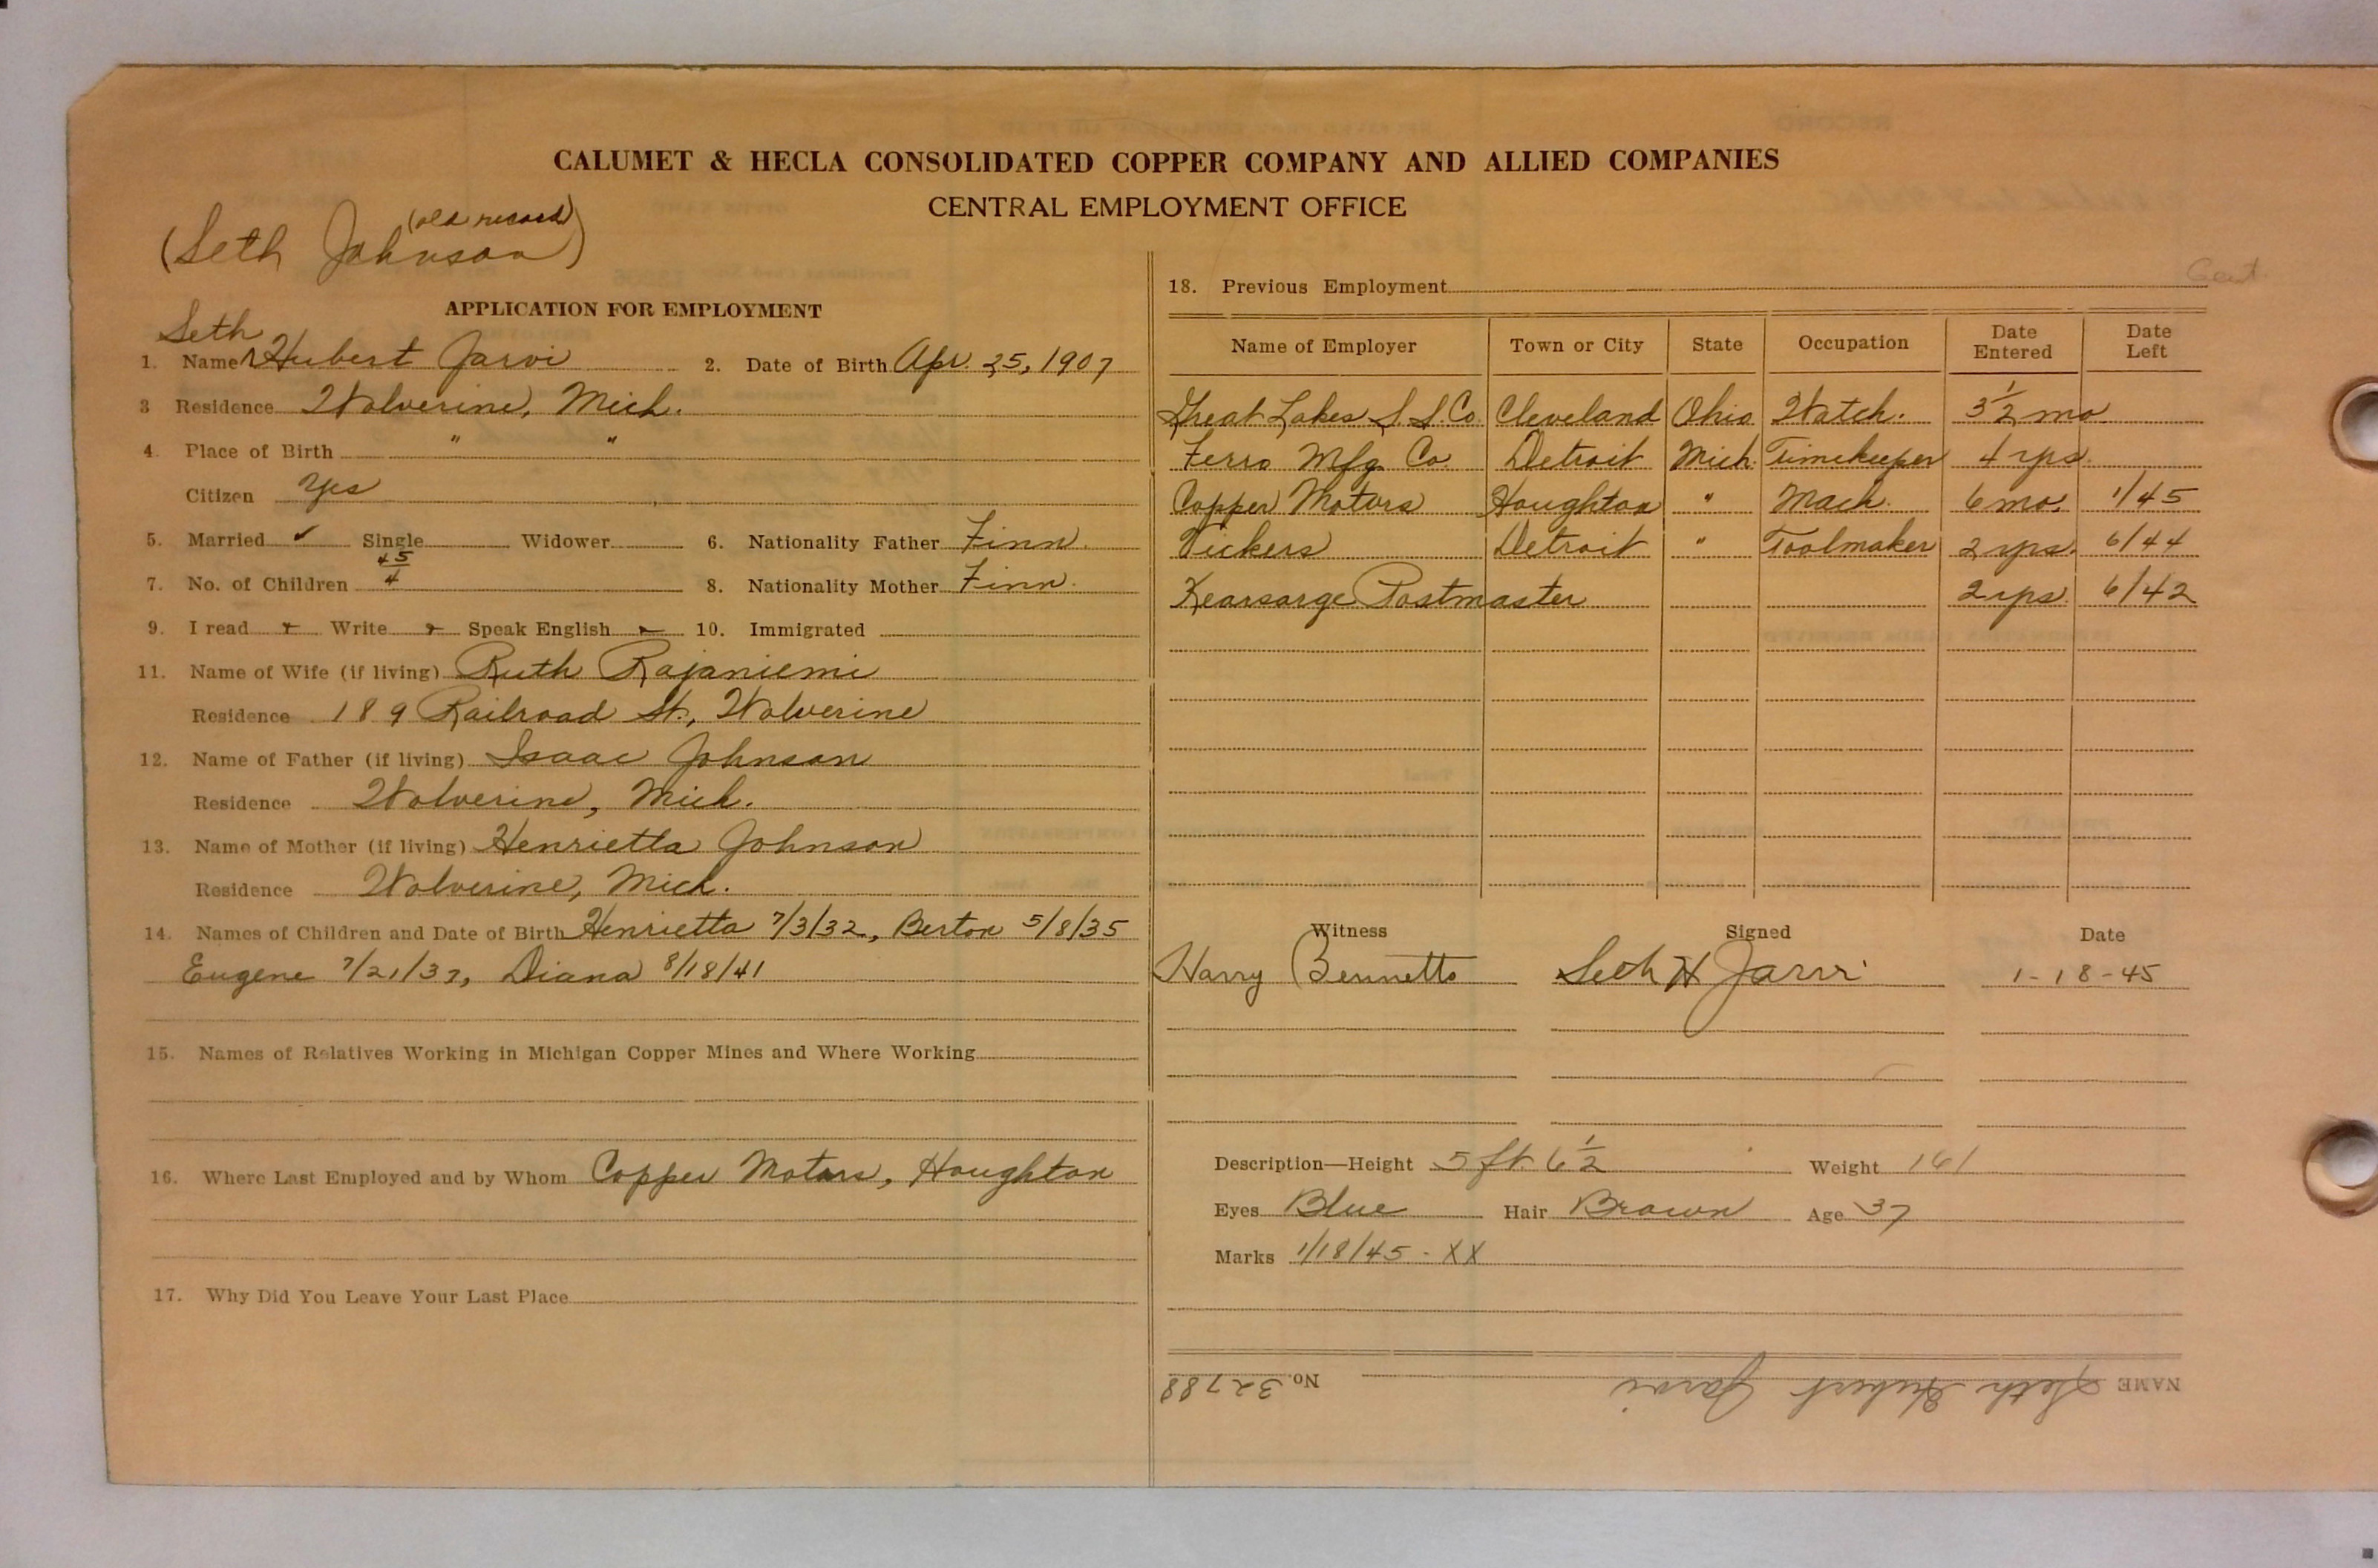 CALUMET & HECLA CONSOLIDATED COPPER COMPANY AND ALLIED COMPANIES
CENTRAL EMPLOYMENT OFFICE
(old record)
(Seth Johnson)
APPLICATION FOR EMPLOYMENT
Seth
1. Name Hubert Jarvi 2. Date of Birth Apr. 25, 1907
3 Residence Wolverine, Mich.
4. Place of Birth " "
Citizen Yes
5. Married ✓ Single Widower 6. Nationality Father Finn.
45
7. No. of Children 4 8. Nationality Mother Finn.
9. I read Write Speak English 10. Immigrated
11. Name of Wife (if living) Ruth Rajaniemi
Residence 189 Railroad St., Wolverine
12. Name of Father (if living) Isaac Johnson
Residence Wolverine, Mich.
13. Name of Mother (if living) Henrietta Johnson
Residence Wolverine, Mich.
14. Names of Children and Date of Birth Henrietta 7/3/32, Berton 5/8/35
Eugene 7/21/37, Diana 8/18/41
15. Names of Relatives Working in Michigan Copper Mines and Where Working
16. Where Last Employed and by Whom Copper Motors, Houghton
17. Why Did You Leave Your Last Place
18. Previous Employment
Name of Employer Town or City State Occupation Date Entered Date Left
Great Lakes S.S. Co. Cleveland Ohio Watch. 3 1/2 mo.
Ferro Mfg. Co. Detroit Mich. Timekeeper 4 yrs.
Copper Motors Houghton " Mach. 6 mo. 1/45
Vickers Detroit " Toolmaker 2 yrs. 6/44
Kearsarge Postmaster 2 yrs. 6/42
Witness Signed Date
Harry Bennetts Seth H Jarvi 1-18-45
Description—Height 5 ft. 6 1/2 Weight 161
Eyes Blue Hair Brown Age 37
Marks 1/18/45 - XX
NAME Seth Hubert Jarvi No. 32788